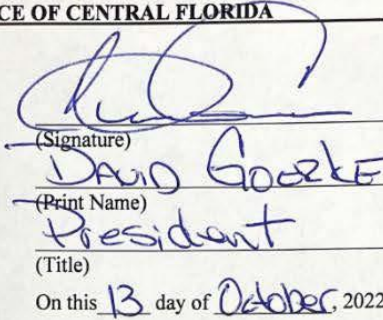 CE OF CENTRAL FLORIDA
(Signature)
DAVID GOERKE
(Print Name)
President
(Title)
On this 13 day of October, 2022